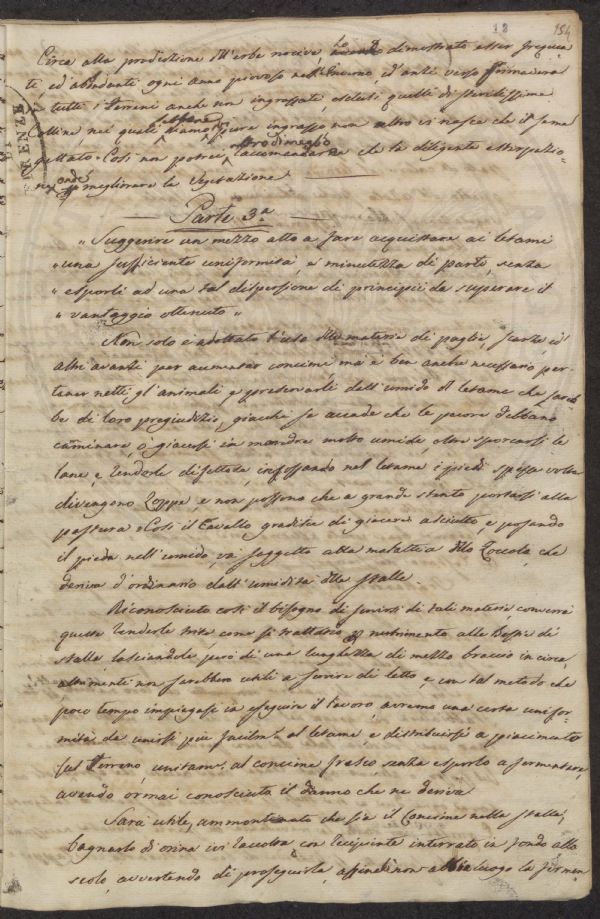 18 154
Circa alla produzione dll'erbe nocive, ho dimostrato esser frequen
ti ed abbondanti ogni anno piovoso nell'Inverno, ed anzi verso Primavera
e tutti i terreni anche non ingrassati, esclusi quelli di sterilissime
Colline, nei quali sebbene siavi ingrasso non altro vi nasce che il seme
gettato. Così non potrei altro di meglio raccomandare che la diligente estirpazio-
ne onde migliorare la Vegetazione
Parte 3.a
" Suggerire un mezzo atto a fare acquistare ai letami
" una sufficiente uniformità, e minutezza di parti, senza
" esporli ad una tal dispersione di principii da superare il
" vantaggio ottenuto "
Non solo è adottato l'uso dlle materie di paglie, scarze, ed
altri avanzi per aumentar concime ma è ben anche necessario per
tener netti gl'animali e preservarli dall'umido dl letame che sareb
be di loro pregiudizio, giacchè se accade che le pecore debbano
camminare, o giacersi in mandre molto umide, oltre sporcarsi le
lane, e renderle difettose, infossando nel letame i piedi spesse volte
divengono zoppe, e non possono che a grande stento portarsi alla
pastura. Così il Cavallo gradisce di giacere asciutto, e posando
il piede nell'umido, va soggetto alla malattia dlla Zoccola, che
deriva d'ordinario dall'umidità dlle stalle.
Riconosciuto così il bisogno di servirsi di tali materie, converrà
queste renderle trite come se trattasse nutrimento alle bestie di
stalla lasciandole però di una lunghezza di mezzo braccio in circa,
altrimenti non sarebbero utili a servire di letto, e con tal metodo che
poco tempo impiegasi in eseguire il lavoro, avremo una certa unifor-
mità da unirsi più facilm.e al letame e distribuirsi a piacimento
sul terreno unitam.e al concime fresco, senza esporlo a fermentare,
avendo ormai conosciuto il danno che ne deriva.
Sarà utile, ammontinato che sia il Concime nella stalla,
bagnarlo di orina ivi raccolta con recipiente interrato in fondo allo
scolo, avvertendo di proseguirla, affinchè non abbia luogo la fermen